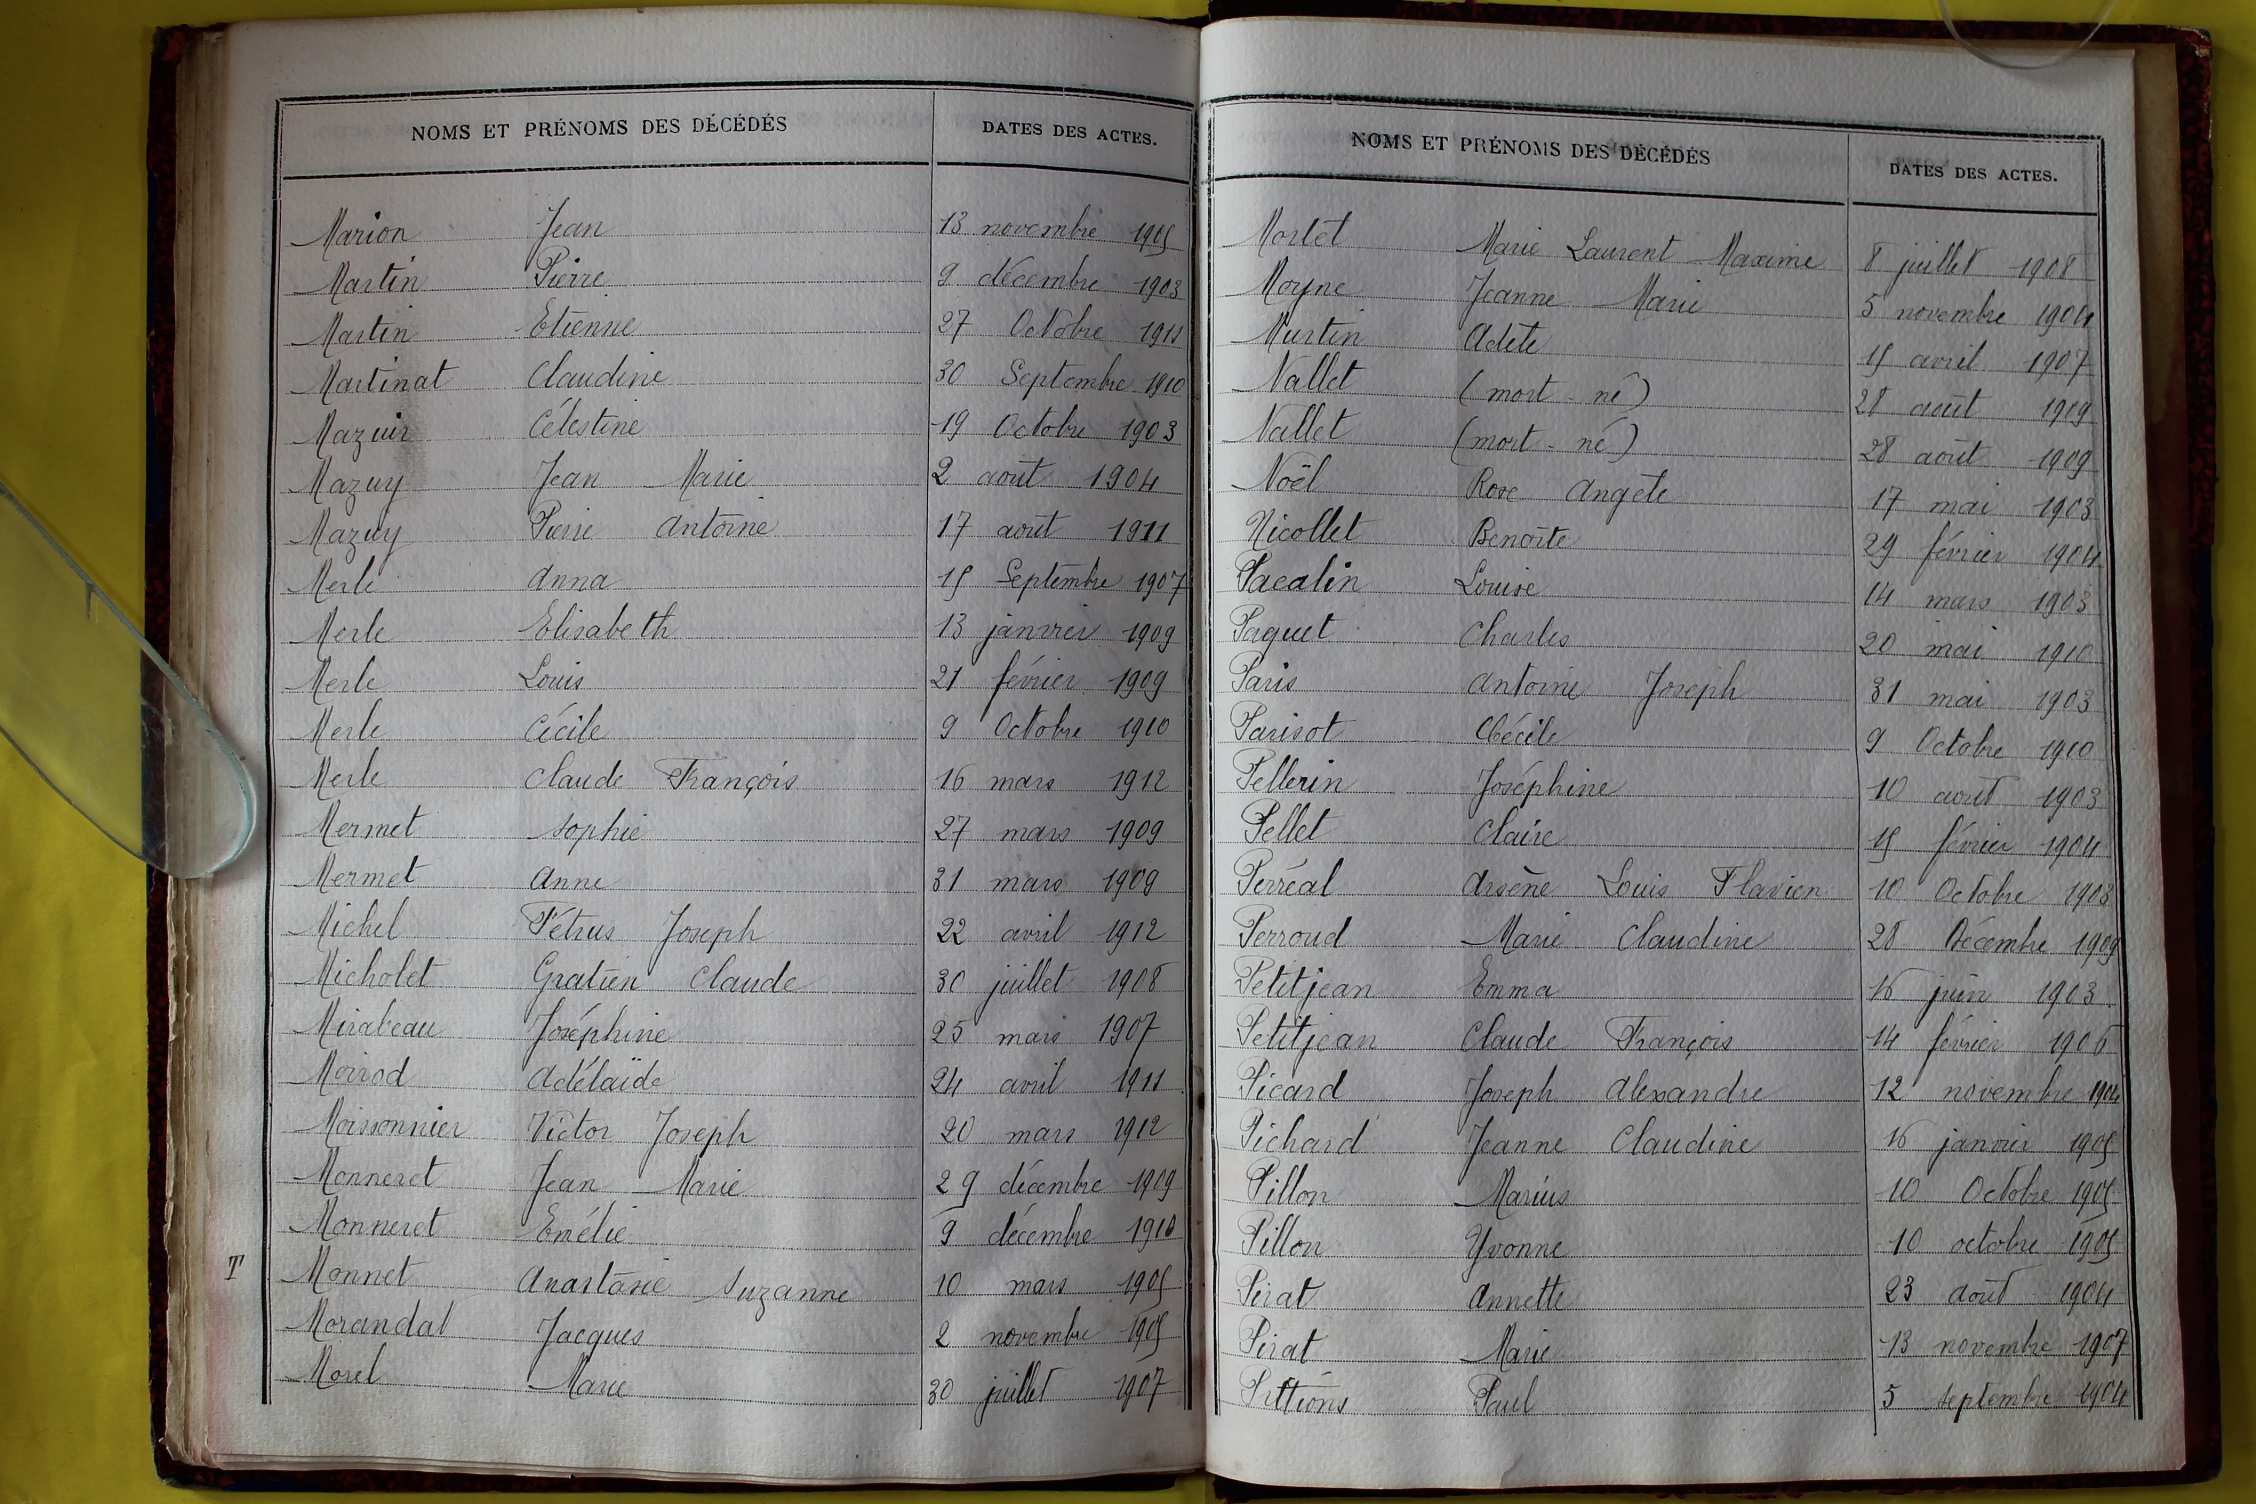 NOMS ET PRÉNOMS DES DÉCÉDÉS DATES DES ACTES.
Marion Jean 13 novembre 1905
Martin Pierre 9 décembre 1903
Martin Etienne 27 Octobre 1911
Martinat Claudine 30 Septembre 1910
Mazuir Célestine 19 Octobre 1903
Mazuy Jean Marie 2 août 1904
Mazuy Pierre Antoine 17 août 1911
Merle Anna 15 Septembre 1907
Merle Elisabeth 13 janvier 1909
Merle Louis 21 février 1909
Merle Cécile 9 Octobre 1910
Merle Claude François 16 mars 1912
Mermet Sophie 27 mars 1909
Mermet Anne 31 mars 1909
Michel Pétrus Joseph 22 avril 1912
Micholet Gratien Claude 30 juillet 1908
Mirabeau Joséphine 25 mars 1907
Moirod Adélaïde 24 avril 1911
Moissonnier Victor Joseph 20 mars 1912
Monneret Jean Marie 29 décembre 1909
Monneret Emélie 9 décembre 1910
T Monnet Anastasie Suzanne 10 mars 1905
Morandat Jacques 2 novembre 1905
Morel Marie 30 juillet 1907
NOMS ET PRÉNOMS DES DÉCÉDÉS DATES DES ACTES.
Mortet Marie Laurent Maxime 8 juillet 1908
Moyne Jeanne Marie 5 novembre 1904
Murtin Adèle 15 avril 1907
Nallet (mort-né) 28 août 1909
Nallet (mort-né) 28 août 1909
Noël Rose Angèle 17 mai 1903
Nicollet Benoite 29 février 1904
Pacalin Louise 14 mars 1903
Paquet Charles 20 mai 1910
Paris Antoine Joseph 31 mai 1903
Parisot Cécile 9 Octobre 1910
Pellerin Joséphine 10 août 1903
Pellet Claire 15 février 1904
Perréal Arsène Louis Flavien 10 Octobre 1903
Perroud Marie Claudine 28 Décembre 1909
Petitjean Emma 16 juin 1903
Petitjean Claude François 14 février 1906
Picard Joseph Alexandre 12 novembre 1904
Pichard Jeanne Claudine 16 janvier 1905
Pillon Marius 10 Octobre 1905
Pillon Yvonne 10 octobre 1905
Pirat Annette 23 août 1904
Pirat Marie 13 novembre 1907
Pittions Paul 5 septembre 1904